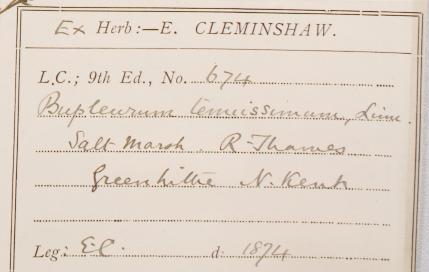 Ex Herb:—E. CLEMINSHAW.
L.C.; 9th Ed., No. 674
Bupleurum tenuissimum, Linn.
Salt Marsh. R. Thames
Greenhithe N. Kent
Leg: E.C. d. 1874